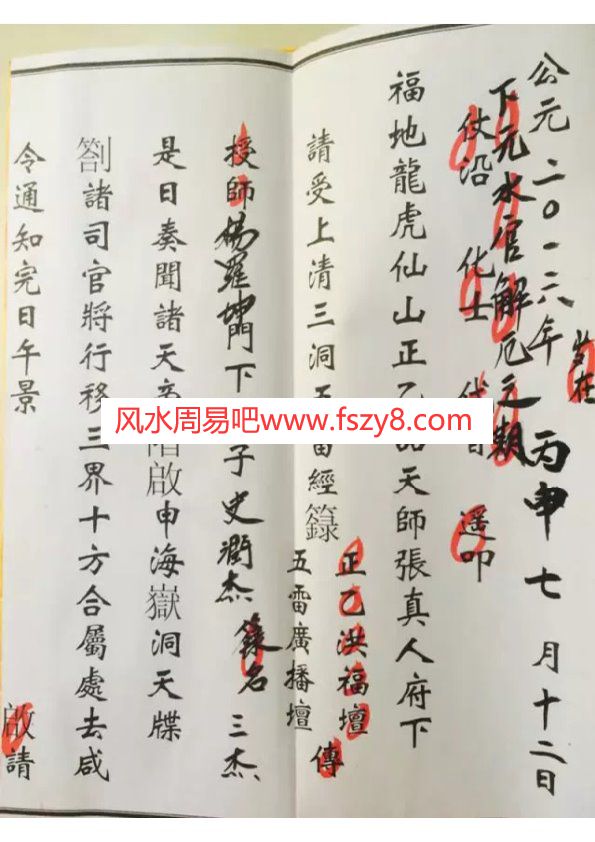 公元二〇一六年岁在丙申七月十二日
下元水官解厄之期
仗沿 化士 代 遥叩
福地龍虎仙山正乙天師張真人府下
請受上清三洞五雷經籙
正乙洪福壇
五雷廣播壇
傳
授師楊羅坤門下子史潤杰 籙名 三杰
是日奏聞諸天帝階啟申海嶽洞天牒
劄諸司官將行移三界十方合屬處去咸
令通知完日午景 啟請
风水周易吧www.fszy8.com